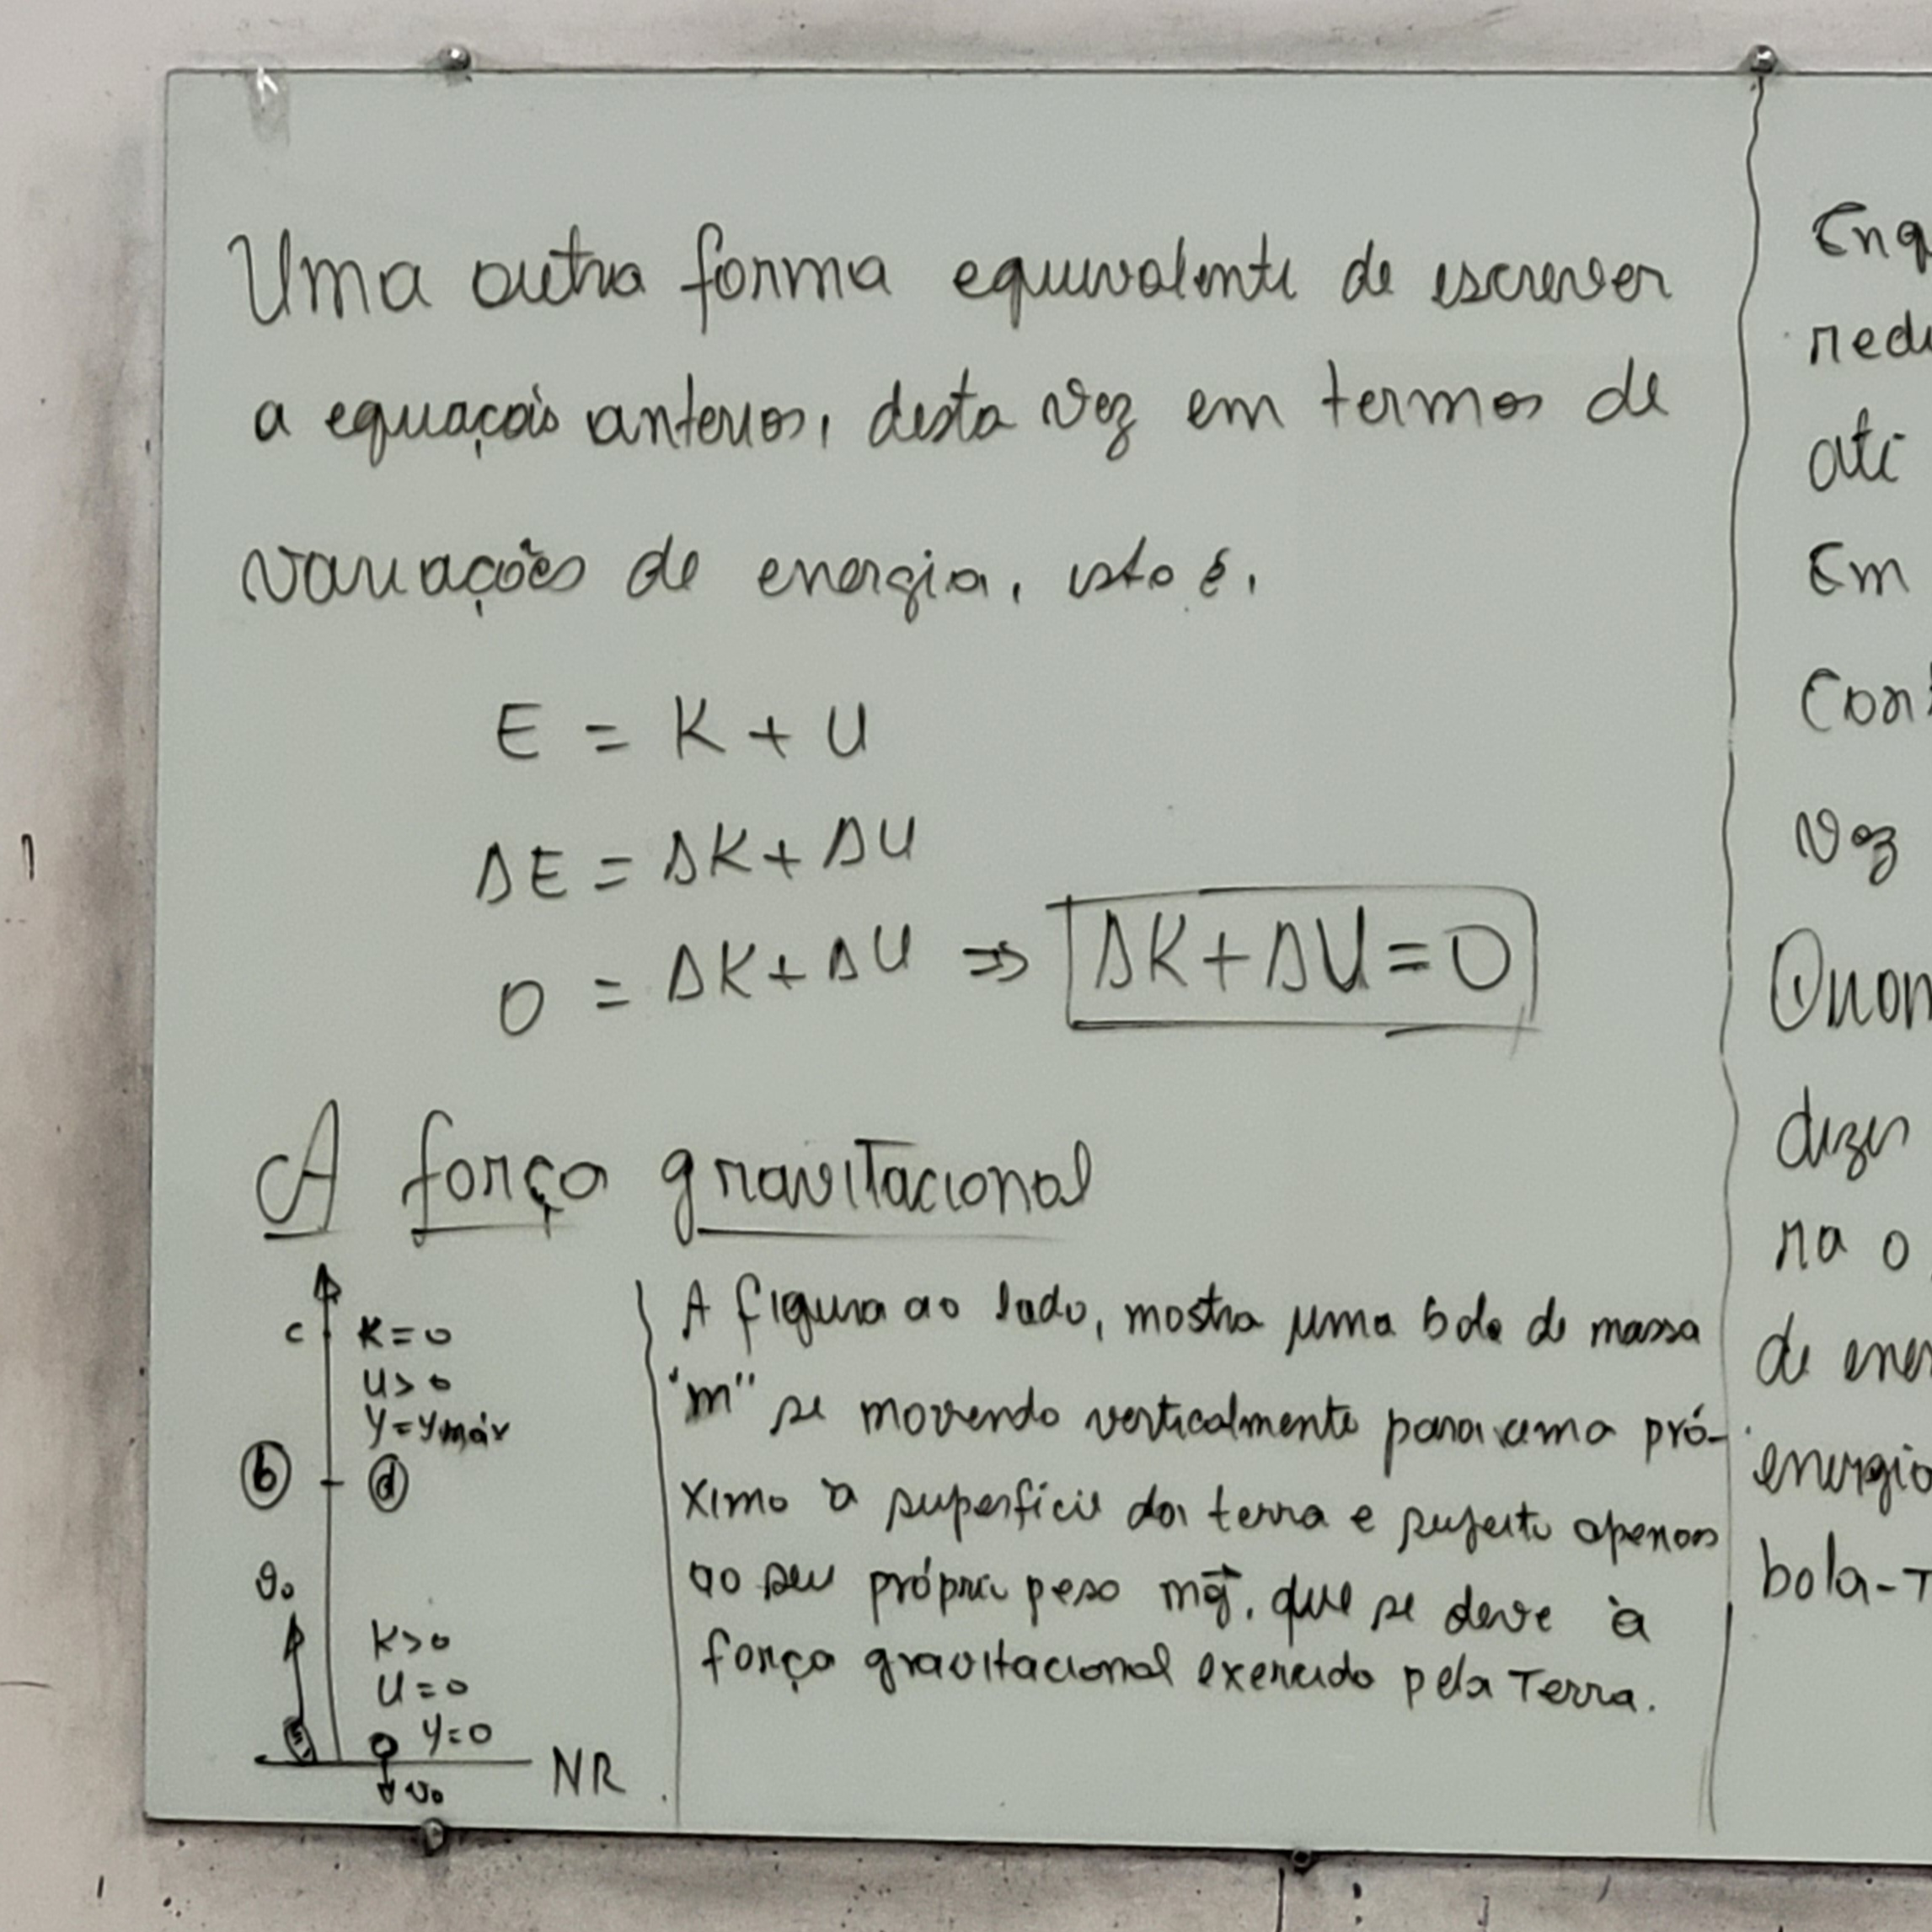 Uma outra forma equivalente de escrever
a equação anterior, desta vez em termos de
variações de energia, isto é,
E = K + U
ΔE = ΔK + ΔU
0 = ΔK + ΔU ⇒ ΔK + ΔU = 0
A força gravitacional
c K = 0
U > 0
y = ymáx
b d
v₀
K > 0
U = 0
y = 0
NR
v₀
A figura ao lado, mostra uma bola de massa
"m" se movendo verticalmente para cima pró-
ximo à superfície da terra e sujeito apenas
ao seu próprio peso mg⃗, que se deve à
força gravitacional exercida pela Terra.
Enq
redu
até
Em
Con
vez
Quan
dizer
ra o
de ener
energia
bola-T